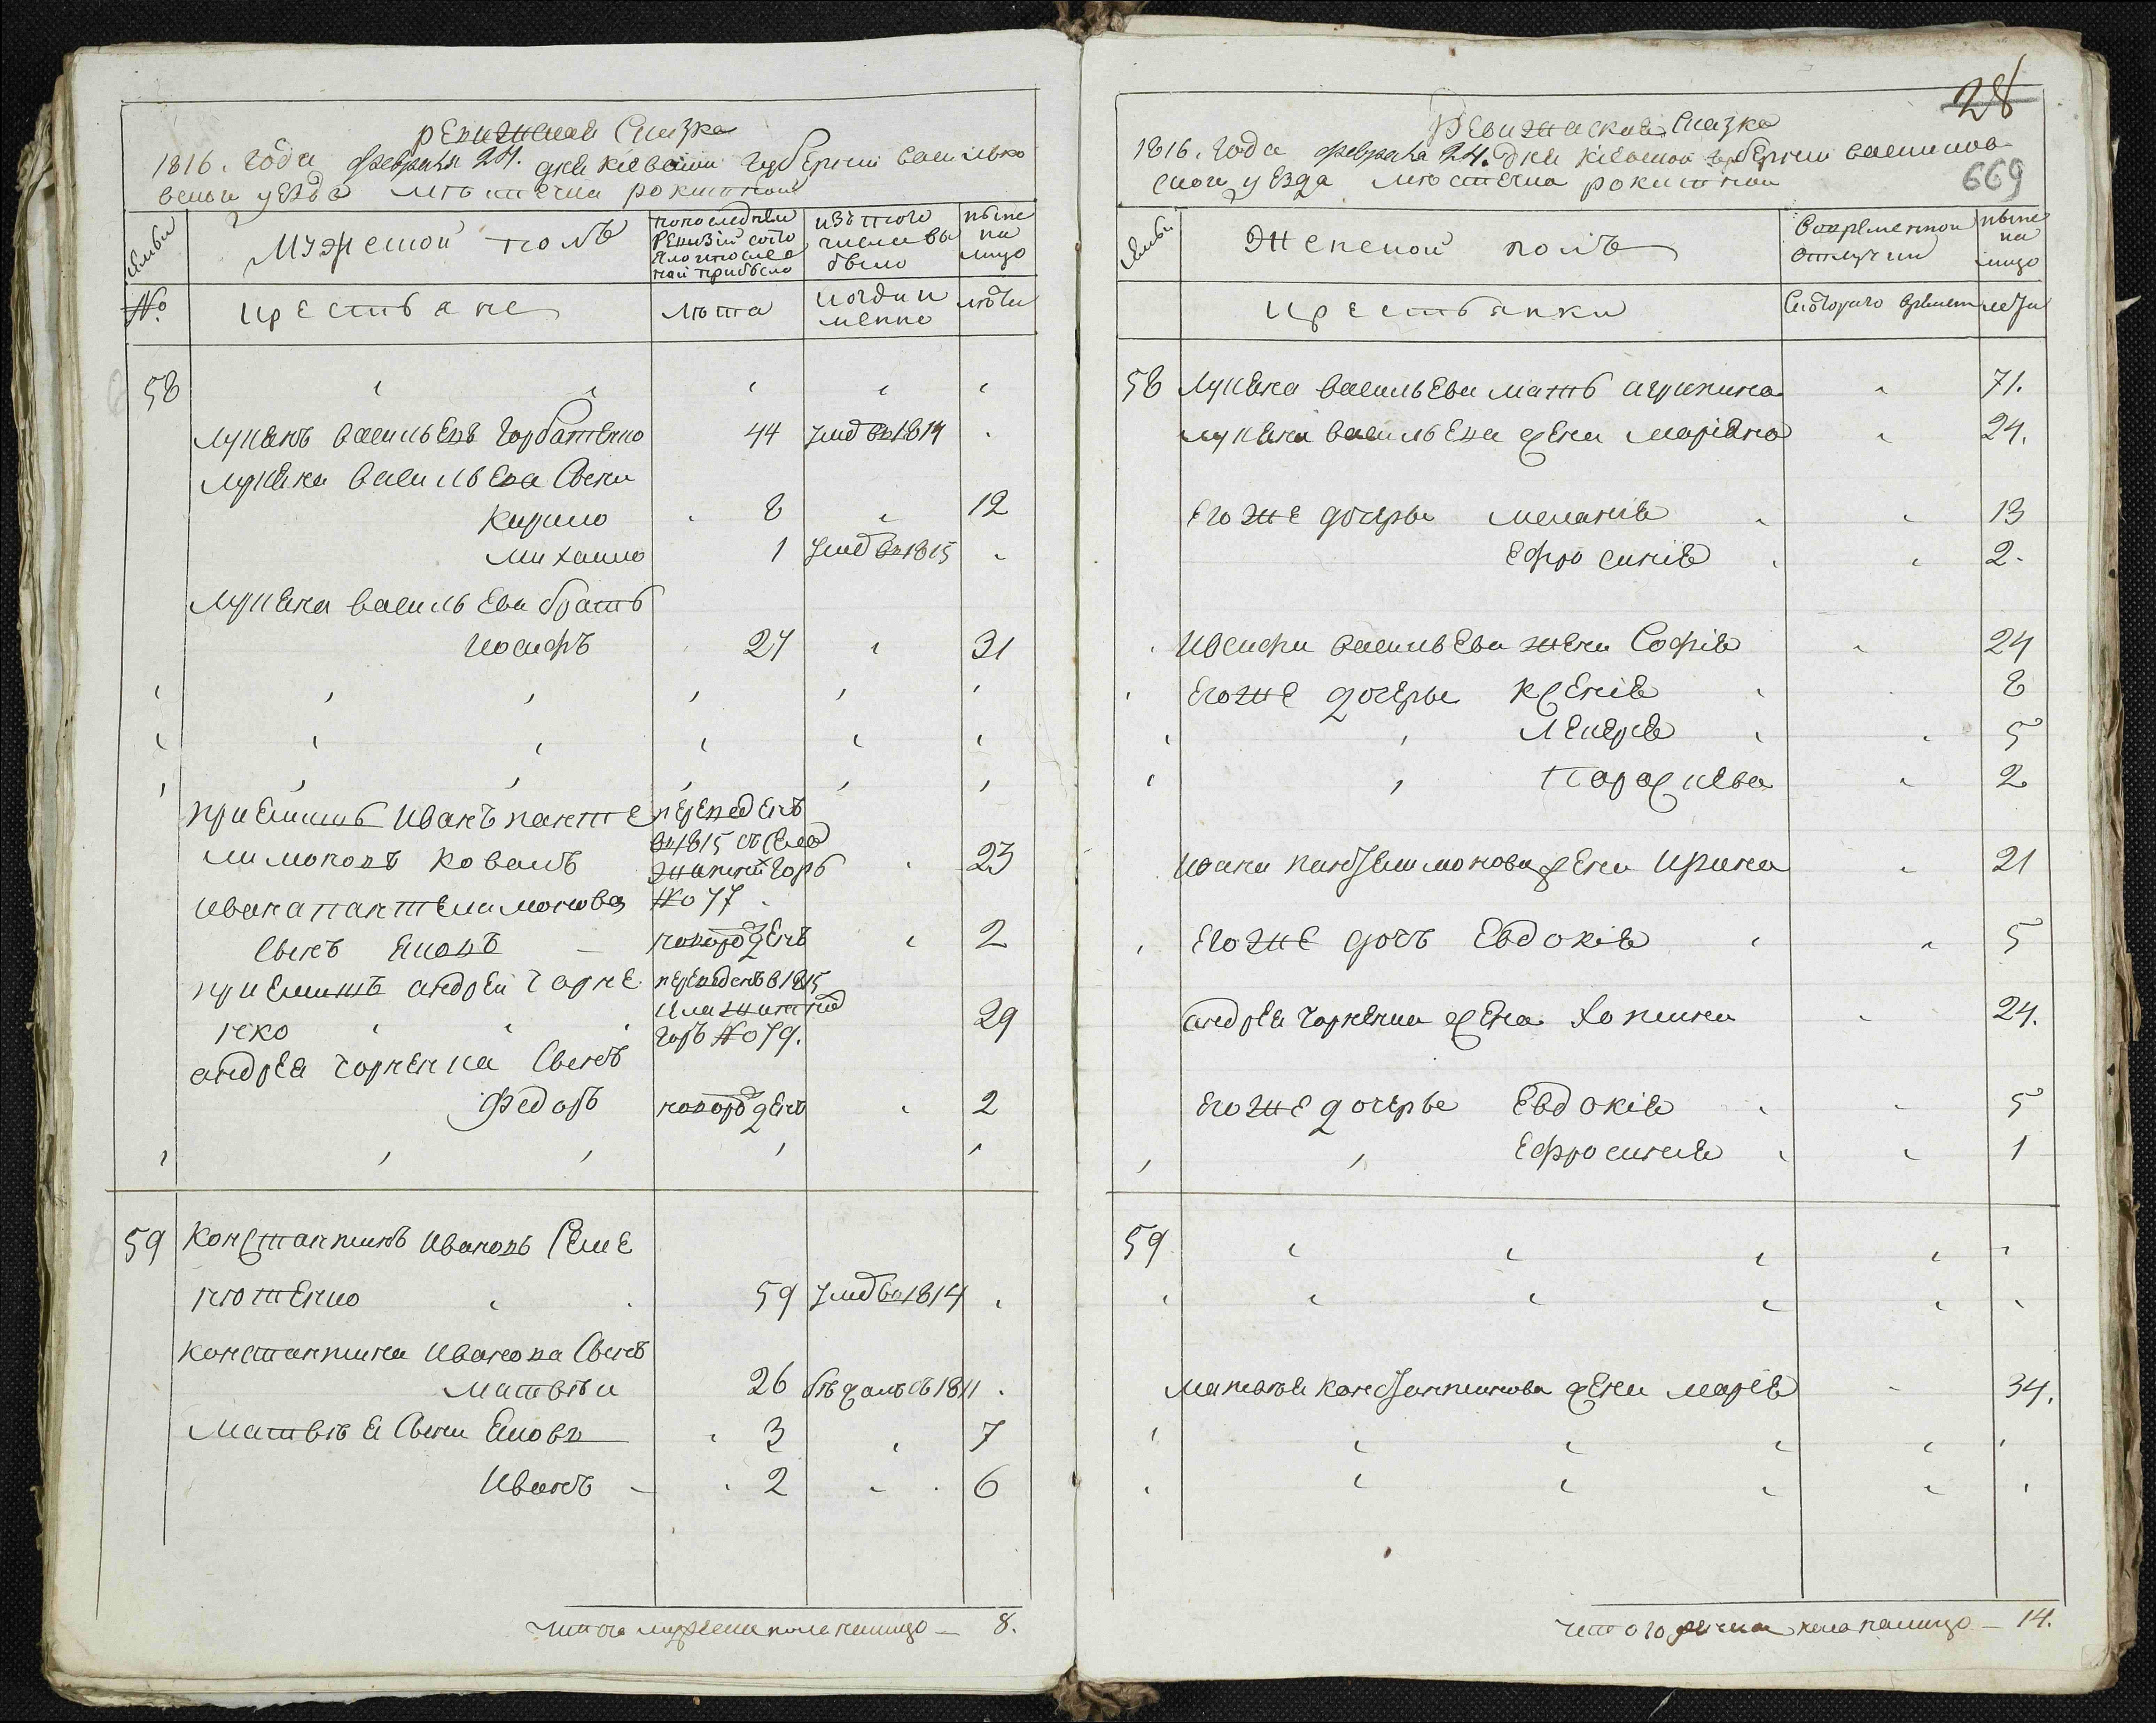 Ревижская Сказка
1816. Года февраля 24. дня киевской Губернии василько
вского уезда местечка рокитной
Семьи
Мужеской полъ
по последней Ревизіи состояло и после ной прибыло
изъ того числа выбыло
ныне на лицо
№
крестьяне
лета
когда именно
лета
58
лукянъ васильевъ Горбатенко 44 умер въ 1814
лукяна васильева Сыны
кирило 8 12
михаило 1 умер въ 1815
лукяна васильева братъ
иосифъ 27 31
приемышъ иванъ панте переведенъ
лимоновъ коваль въ 1815 съ села Житнихъ Горъ 23
ивана пантелимонова №о 77
Сынъ яковъ новорожденъ 2
приемышъ андрей Чорне переведенъ в 1815
нко села житнихъ горъ №о 79. 29
андрея чорненка Сынъ
Федоръ новорожденъ 2
59 константинъ ивановъ Семе
нютенко 59 умер въ 1814
константина иванова Сынъ
матвей 26 бежалъ съ 1811
матвея Сыны яковъ 3 7
иванъ 2 6
итого мужеска пола налицо — 8.
28
669
Ревижская Сказка
1816. Года февраля 24. дня киевской губернии васильков
ского уезда местечка рокитной
Семьи
Женской полъ
Во временной отлучки
ныне на лицо
крестьянки
Съ которого времени
лета
58 лукяна васильева мать агрипина 71.
лукяна васильева жена Маріяна 24.
его же дочеры меланія 13
ефросинія 2.
иосифа васильева жена Софія 24
его же дочеры ксенія 8
ликерія 5
Параскева 2
ивана пантелимонова жена ирина 21
его же дочъ Евдокія 5
андрея чорненка жена хотина 24.
его же дочеры Евдокія 5
Ефросинія 1
59
матвея константинова жена марія 34.
итого женска пола налицо — 14.